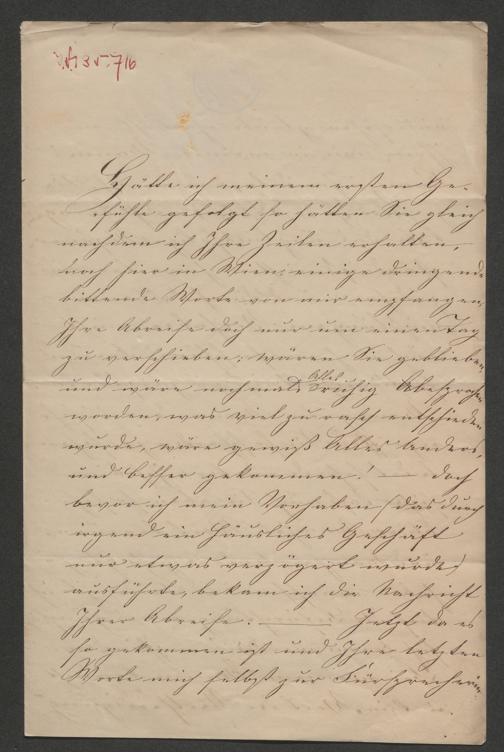 Hätte ich meinem ersten Ge-
fühle gefolgt so hätten Sie gleich
nachdem ich Ihre Zeilen erhalten,
noch hier in Wien, einige dringende
bittende Worte von mir empfangen,
Ihre Abreise doch nur um einen Tag
zu verschieben; wären Sie geblieben
Alles
und wäre nochmals ruhig besprochen
worden, was viel zu rasch entschieden
wurde, wäre gewiß Alles anders,
und besser gekommen! — doch
bevor ich mein Vorhaben (das durch
irgend ein häusliches Geschäft
nur etwas verzögert wurde)
ausführte, bekam ich die Nachricht
Ihrer Abreise. — Jetzt da es
so gekommen ist und Ihre letzten
Worte mich selbst zur Fürsprecherin